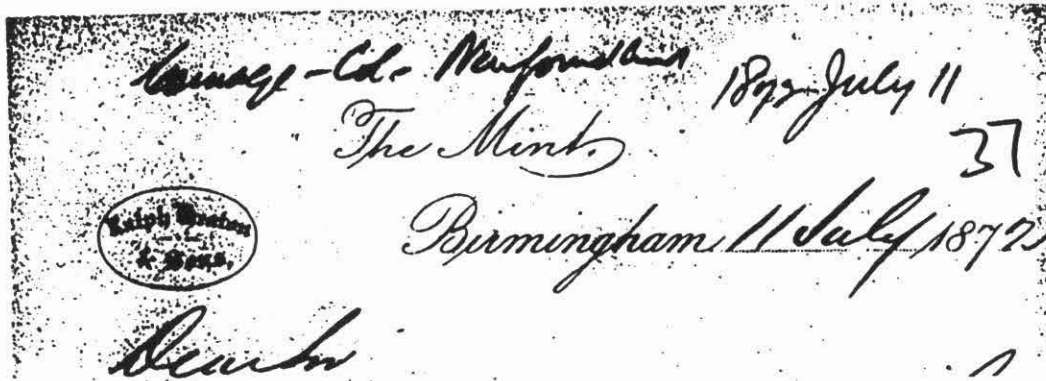 Coinage - Col. Newfoundland
1872 July 11
The Mint,
37
Ralph Heaton
& Sons,
Birmingham, 11 July 1872
Dear Sir